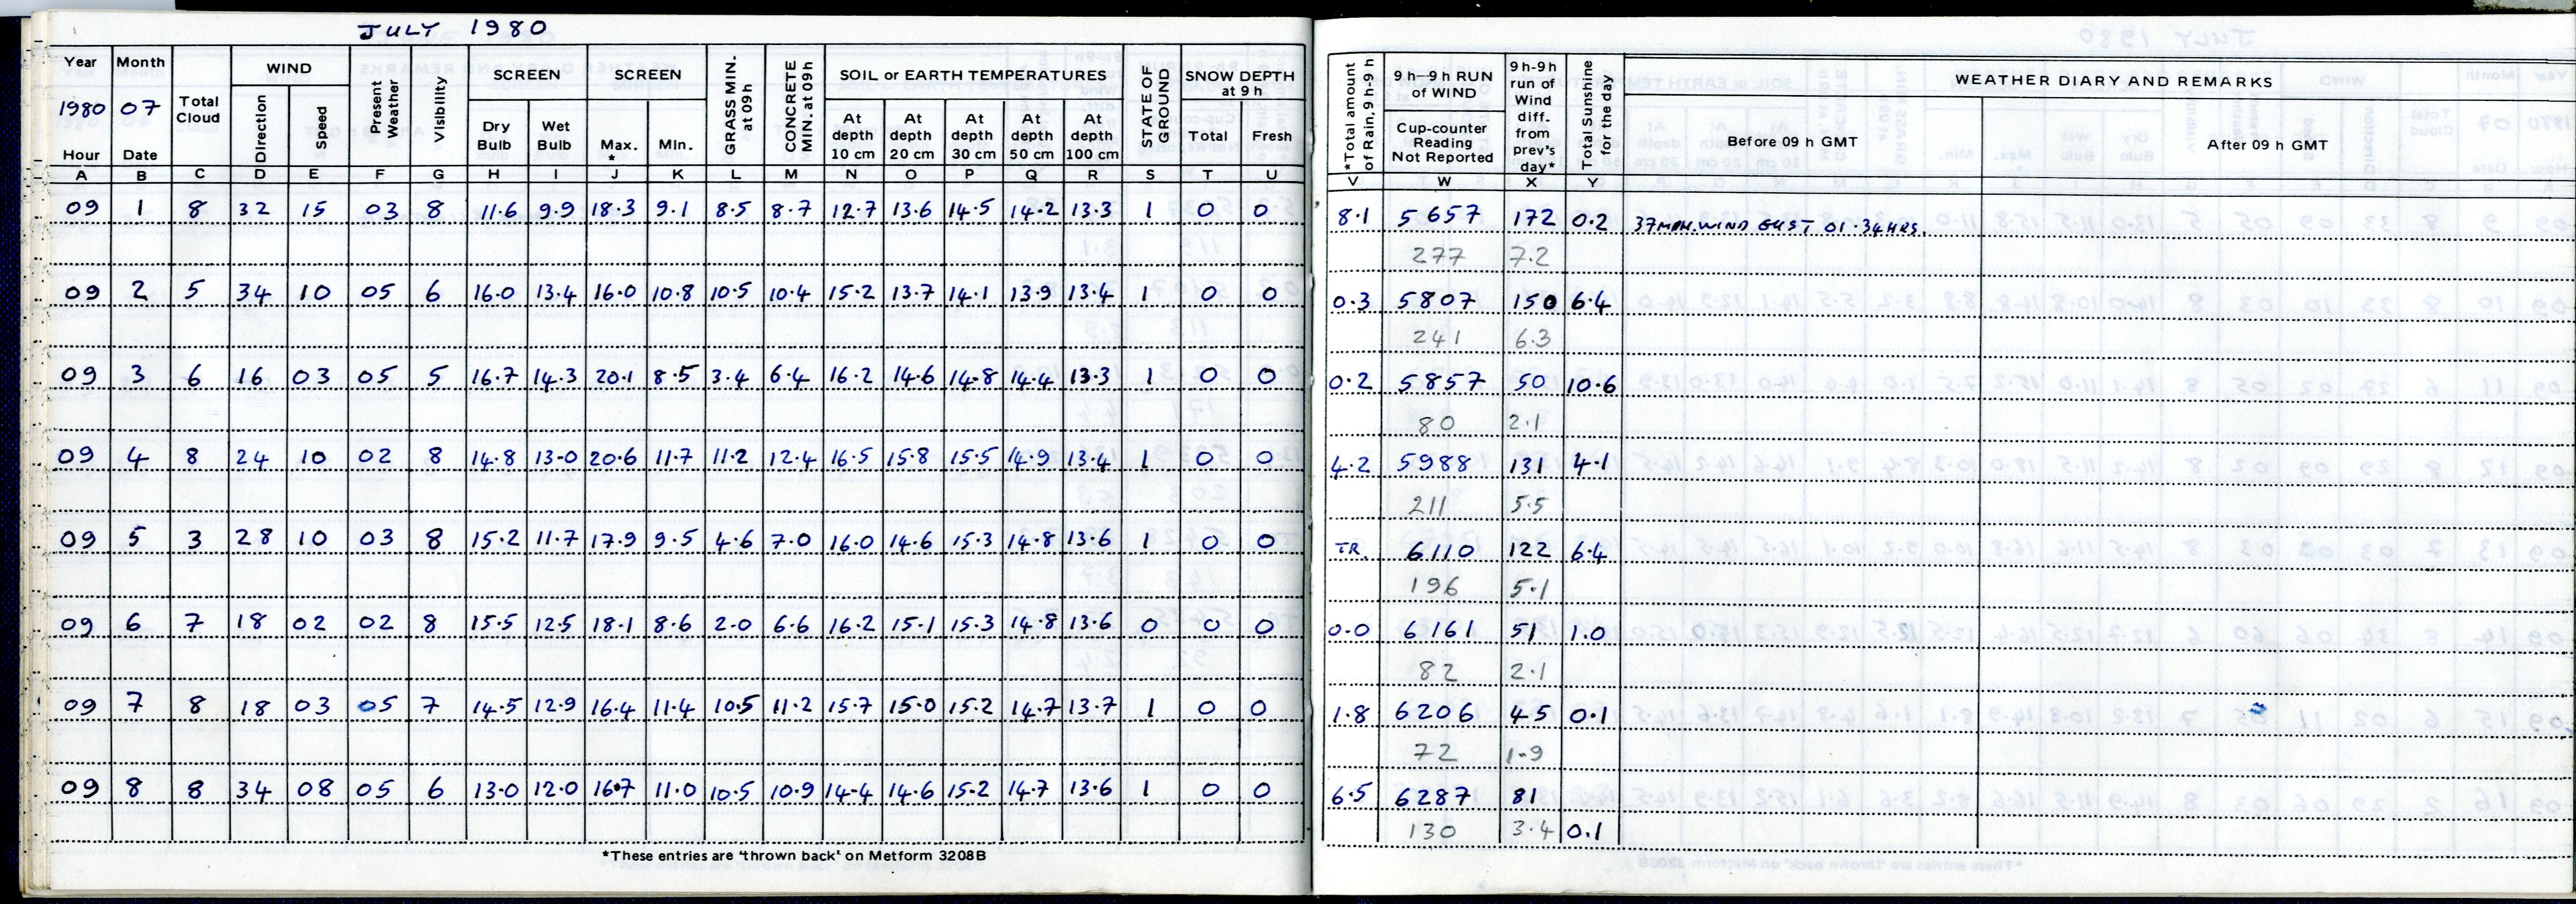 JULY 1980
Year Month Total Cloud WIND Present Weather Visibility SCREEN SCREEN GRASS MIN. at 09h CONCRETE MIN. at 09h SOIL or EARTH TEMPERATURES STATE OF GROUND SNOW DEPTH at 9 h
1980 07 Direction Speed Dry Bulb Wet Bulb Max. * Min. At depth 10 cm At depth 20 cm At depth 30 cm At depth 50 cm At depth 100 cm Total Fresh
Hour Date
A B C D E F G H I J K L M N O P Q R S T U
09 1 8 32 15 03 8 11.6 9.9 18.3 9.1 8.5 8.7 12.7 13.6 14.5 14.2 13.3 1 0 0
09 2 5 34 10 05 6 16.0 13.4 16.0 10.8 10.5 10.4 15.2 13.7 14.1 13.9 13.4 1 0 0
09 3 6 16 03 05 5 16.7 14.3 20.1 8.5 3.4 6.4 16.2 14.6 14.8 14.4 13.3 1 0 0
09 4 8 24 10 02 8 14.8 13.0 20.6 11.7 11.2 12.4 16.5 15.8 15.5 14.9 13.4 1 0 0
09 5 3 28 10 03 8 15.2 11.7 17.9 9.5 4.6 7.0 16.0 14.6 15.3 14.8 13.6 1 0 0
09 6 7 18 02 02 8 15.5 12.5 18.1 8.6 2.0 6.6 16.2 15.1 15.3 14.8 13.6 0 0 0
09 7 8 18 03 05 7 14.5 12.9 16.4 11.4 10.5 11.2 15.7 15.0 15.2 14.7 13.7 1 0 0
09 8 8 34 08 05 6 13.0 12.0 16.7 11.0 10.5 10.9 14.4 14.6 15.2 14.7 13.6 1 0 0
*These entries are 'thrown back' on Metform 3208B
*Total amount of Rain, 9h-9h 9h–9h RUN of WIND 9h-9h run of Wind diff. from prev's day* Total Sunshine for the day WEATHER DIARY AND REMARKS
Cup-counter Reading Not Reported Before 09 h GMT After 09 h GMT
V W X Y
8.1 5657 172 0.2 37 MPH. WIND GUST 01.34HRS.
277 7.2
0.3 5807 150 6.4
241 6.3
0.2 5857 50 10.6
80 2.1
4.2 5988 131 4.1
211 5.5
TR. 6110 122 6.4
196 5.1
0.0 6161 51 1.0
82 2.1
1.8 6206 45 0.1
72 1.9
6.5 6287 81
130 3.4 0.1